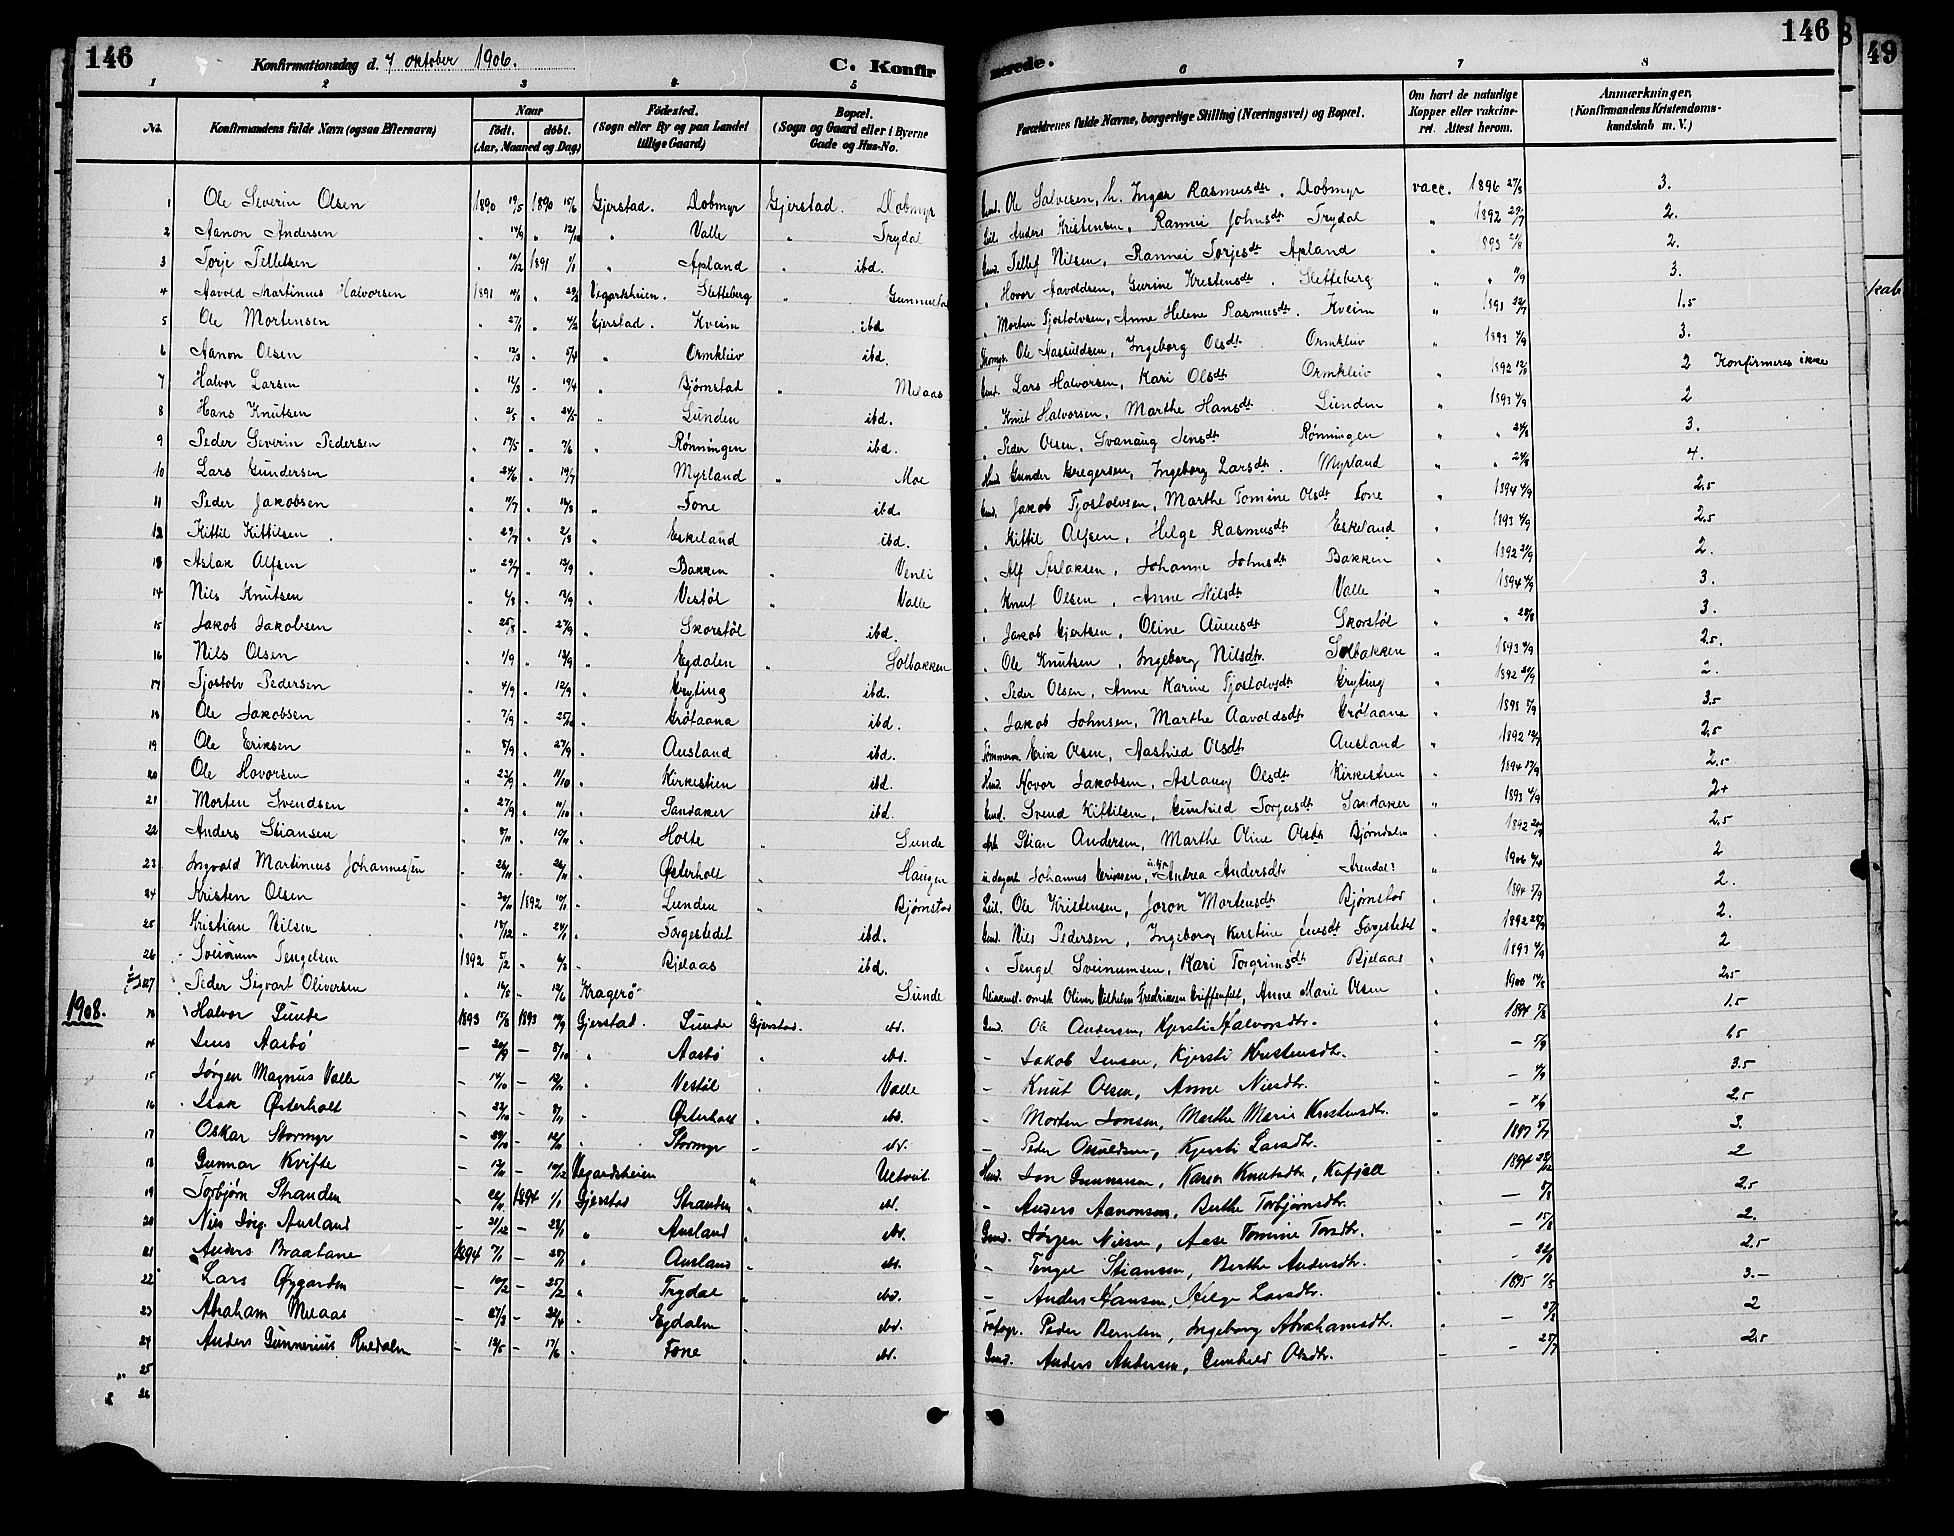 146
Konfirmationsdag d. 7 oktober 1906.
C. Konfir
merede.
146
49
1 2 3 4 5 6 7 8
No. Konfirmandens fulde Navn (ogsaa Efternavn) Naar født. døbt. (Aar, Maaned og Dag) Fødested. (Sogn eller By og paa Landet tillige Gaard) Bopæl. (Sogn og Gaard eller i Byerne Gade og Hus-No. Forældrenes fulde Navne, borgerlige Stilling (Næringsvei) og Bopæl. Om havt de naturlige Kopper eller vakcineret. Attest herom. Anmærkninger, (Konfirmandens Kristendomskundskab m. V.)
1 Ole Severin Olsen 1890 19/5 1890 15/6 Gjerstad. Dobmyr Gjerstad. Dobmyr Gmd. Ole Salvesen, h. Inger Rasmusdtr. Dobmyr vacc. 1896 27/8 3.
2 Aanon Andersen " 14/9 " 12/10 " Valle " Trydal Anders Kristensen, Rannei Johnsdt Trydal " 1892 29/7 2.
3 Torje Tellefsen " 10/12 1891 1/1 " Apland " ibd. Gmd. Tellef Nilsen, Rannei Torjesdt Apland " 1893 21/8 2.
4 Aavold Martinius Halvorsen 1891 " Vegardsheien. Sletteberg " " Hovor Aavoldsen, Gurine Kristensdt. Sletteberg " " 11/9 3.
5 Ole Mortensen " 27/1 " 4/2 Gjerstad. Kveim ibd " Morten Tjostolvsen, Anne Helene Rasmusdt. Kveim " 1.5
6 Aanon Olsen " 12/3 " 5/4 " Ormkleiv ibd. Ole Aasuldsen, Ingeborg Olsdt. Ormkleiv " 1893 4/9 3.
7 Halvor Larsen " 11/3 " 19/4 " Bjørnstad " Melaas Gmd. Lars Halvorsen, Kari Olsdt Ormkleiv " 1892 12/8 2 Konfirmeres ikke
8 Hans Knutsen " 2/5 " 24/5 " Lunden ibd. " Knut Halvorsen, Marthe Hansdt Lunden " 1893 4/9 2
9 Peder Severin Pedersen " 17/5 " 7/6 " Rønningen ibd. " Peder Olsen, Svanaug Jensdt Rønningen " " 24/8 3.
10 Lars Gundersen " 24/6 " 19/7 " Myrland " Moe Hmd Gunder Gregersen, Ingeborg Larsdt. Myrland " " 24/8 4.
11 Peder Jakobsen " " " Fone ibd. Gmd. Jakob Tjostolvsen, Marthe Tomine Olsdt Fone " 1894 4/9 2.5
12 Kittil Kittilsen " 29/7 " 2/8 " Eskeland ibd. " Kittil Olsen, Helge Rasmusdt Eskeland " 1893 4/9 2.5
13 Aslak Alfsen " 29/7 " 13/9 " Bakken " Venli " Alf Aslaksen, Johanne Johnsdt Bakken " 1892 21/9 2.
14 Nils Knutsen " " 13/9 " Vestøl " Valle " Knut Olsen, Anne Nilsdt Valle " 1894 4/9 3.
15 Jakob Jakobsen " 25/8 " 27/9 " Skorstøl ibd. " Jakob Gjertsen, Oline Auensdt Skorstøl " " 28/8 3.
16 Nils Olsen " 1/9 " 13/9 " Egdalen " Solbakken " Ole Knutsen, Ingeborg Nilsdtr. Solbakken " 1893 4/9 2.5.
17 Tjostolv Pedersen " 4/9 " 12/9 " Gryting ibd. " Peder Olsen, Anne Karine Tjostolvsdt Gryting " 1892 2.
18 Ole Jakobsen " 7/9 " 25/10 " Grøtaana ibd. " Jakob Johnsen, Marthe Aavoldsdt Grøtaana " 1893 5/9 3.5
19 Ole Eriksen " 8/9 " 27/9 " Ausland ibd. Tømmerm. Erik Olsen, Aashild Olsdt Ausland " 1892 2.5
20 Ole Hovorsen " 23/9 " 11/10 " Kirkestien ibd. Hmd. Hovor Jakobsen, Aslaug Olsdt Kirkestien " 1894 17/9 2.5
21 Morten Svendsen " 27/9 " 11/10 " Sandaker ibd. Gmd. Svend Kittilsen, Gunhild Torjusdt Sandaker " 1893 4/9 2+
22 Anders Stiansen " 8/11 " " Holte " Sunde Arb Stian Andersen, Marthe Oline Olsdt Bjørndalen " 1892 2.5
23 Ingvald Martinius Johannessen " 26/11 " 26/11 " Østerholt " Haugen Johannes Eriksen, Andrea Andersdtr Arendal? " 1906 2
24 Kristen Olsen " 1892 " Lunden " Bjørnstad Ole Kristensen, Joron Mortensdt Bjørnstad " 1894 5/9 2.
25 Kristian Nilsen " 18/12 " 24/1 " Forgestedet ibd. Gmd. Nils Pedersen, Ingeborg Kirstine Jensdt Forgestedet " 1892 2.
26 Sveinum Tengelsen 1892 5/2 " 6/3 " Bjelaas ibd. " Tengel Sveinumsen, Kari Torgrimsdt Bjelaas " 1893 4/9 2
27 Peder Sigvart Oliversen " " 12/6 Kragerø " Sunde Oliver Vilhelm Fredriksen Griffenfelt, Anne Marie Olsen " 1900 2.5
1908.
13 Halvor Sunde 1893 17/8 1893 17/9 Gjerstad. Sunde Gjerstad. ibd. Gmd. Ole Andersen, Kjersti Halvorsdtr. " 1894 5/8 1.5
14 Jens Aasbø — 20/9 — 8/10 " Aasbø " ibd. – Jakob Jensen, Kjersti Kristensdtr. " — 5/9 1.5
15 Jørgen Magnus Valle — 14/10 — 12/11 " Vestøl " Valle – Knut Olsen, Anne Nilsdtr. " — 4/9 3.5
16 Isak Østerholt — 22/10 — 8/11 " Østerholt " ibd. – Morten Jonsen, Marthe Marie Kristensdtr. " — 4/9 2.5
17 Oskar Stormyr — 29/10 — 12/11 " Stormyr – ibd. – Peder Osuldsen, Kjersti Larsdtr. 1897 5/7 3.
18 Gunnar Kvifte — — 10/12 Vegardsheien " Ueltveit Hmd. Jon Gunnarsen, Karen Knutsdtr, Kufjell 1894 28/12 2
19 Torbjørn Stranden — 26/11 1894 1/1 Gjerstad Stranden " ibd. – Anders Aanonsen, Berthe Torbjørnsdtr. — 5/8 2.5
20 Nils Jørg. Ausland — 21/12 — 28/1 " Ausland " ibd. Gmd. Jørgen Nilsen, Aase Tomine Torsdtr. " — 15/8 2.
21 Anders Braatane 1894 7/1 — 28/1 " Ausland " ibd. – Tengel Stiansen, Berthe Andersdtr. — 2.5
22 Lars Øygarden — 10/2 — 25/2 " Trydal " ibd. – Anders Hansen, Helge Larsdtr. 1895 7/8 3.–
23 Abraham Melaas — 27/3 — 22/4 " Egdalen " ibd. Fotogr. Peder Berntsen, Ingeborg Abrahamsdtr. — 2
24 Anders Gunnerius Ruedalen — 12/5 — 17/6 " Fone " ibd. Gmd. Anders Andersen, Gunhild Olsdtr. – — 25/7 2.5
25
26